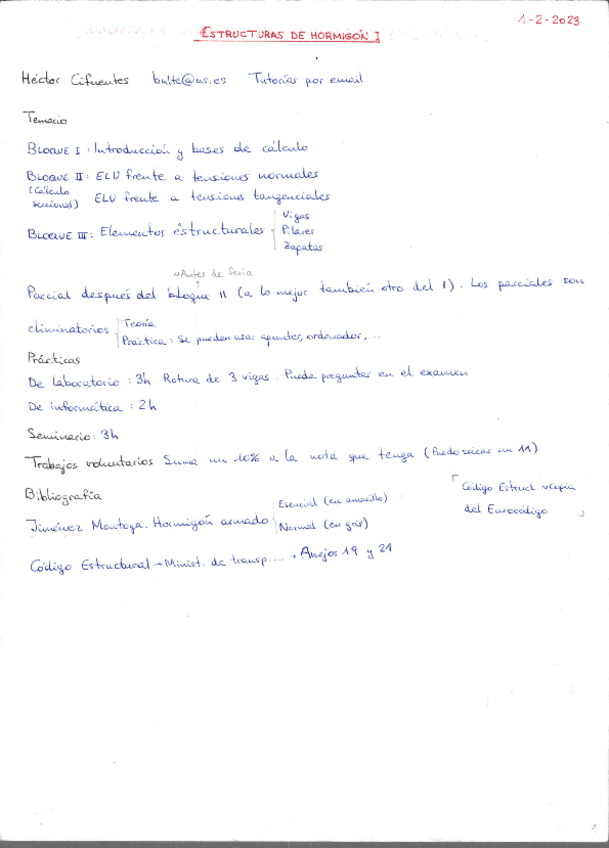 1-2-2023
ESTRUCTURAS DE HORMIGÓN I
Héctor Cifuentes bulte@us.es Tutorías por email
Temario
BLOQUE I: Introducción y bases de cálculo
BLOQUE II: ELU frente a tensiones normales
(Cálculo seccional) ELU frente a tensiones tangenciales
BLOQUE III: Elementos estructurales
Vigas
Pilares
Zapatas
Antes de feria
Parcial después del bloque II (a lo mejor también otro del I). Los parciales son
eliminatorios
Teoría
Práctica: Se pueden usar apuntes, ordenador,...
Prácticas
De laboratorio: 3h Rotura de 3 vigas. Puede preguntar en el examen
De informática: 2h
Seminario: 3h
Trabajos voluntarios Suma un 10% a la nota que tenga (Puedo sacar un 11)
Bibliografía
Jiménez Montoya. Hormigón armado
Esencial (en amarillo)
Normal (en gris)
Código Estruct copia
del Eurocódigo
Código Estructural → Minist. de transp.... → Anejos 19 y 21